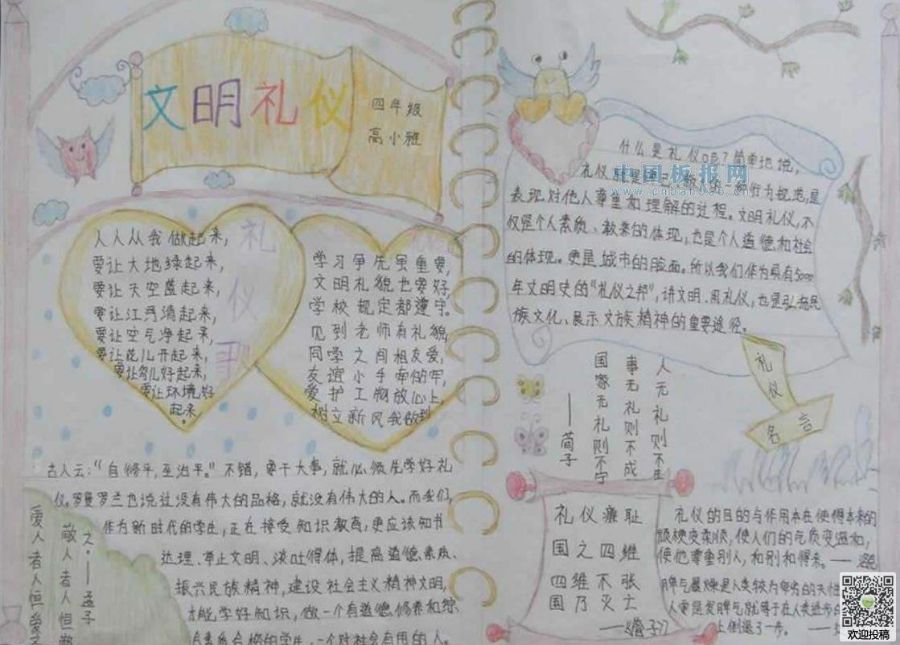 文明礼仪
四年级
高小雅
礼仪歌
人人从我做起来,
要让大地绿起来,
要让天空蓝起来,
要让江河清起来,
要让空气净起来,
要让花儿开起来,
要让鸟儿好起来,
要让环境好
起来。
学习争先虽重要,
文明礼貌也要好,
学校规定都遵守。
见到老师有礼貌
同学之间相友爱,
友谊小手牵的牢,
爱护工物放心上,
树立新风我做到
古人云:“自修齐,至治平。”不错,要干大事,就必须先学好礼
仪。罗曼罗兰也说过没有伟大的品格,就没有伟大的人。而我们,
作为新时代的学生,正在接受知识教育,更应该知书
达理、举止文明、谈吐得体,提高道德素质、
振兴民族精神,建设社会主义精神文明,
才能学好知识,做一个有道德修养和
的学生,一个对社会有用的人。
爱人者人恒爱
敬人者人恒敬
之。——孟子
什么是礼仪呢?简单地说,
礼仪就是
行为规范,是
表现对他人尊重和理解的过程。文明礼仪,不
仅是个人素质、教养的体现,也是个人道德和社会
的体现。更是城市的脸面。所以我们作为具有5000
年文明史的“礼仪之邦”,讲文明、用礼仪,也是弘扬民
族文化、展示文族精神的重要途径。
中国板报网
礼仪
名言
人无礼则不生
事无礼则不成
国家无礼则不宁
——荀子
礼仪廉耻
国之四维
四维不张
国乃灭亡
——《管子》
礼仪的目的与作用本在使得本来的
顽梗变柔顺,使人们的气质变温和,
使他尊重别人,和别和得来。——
脾气暴燥是人类较为卑劣的天性
人要是发脾气就等于在人类进步的
上倒退了一步。——
欢迎投稿